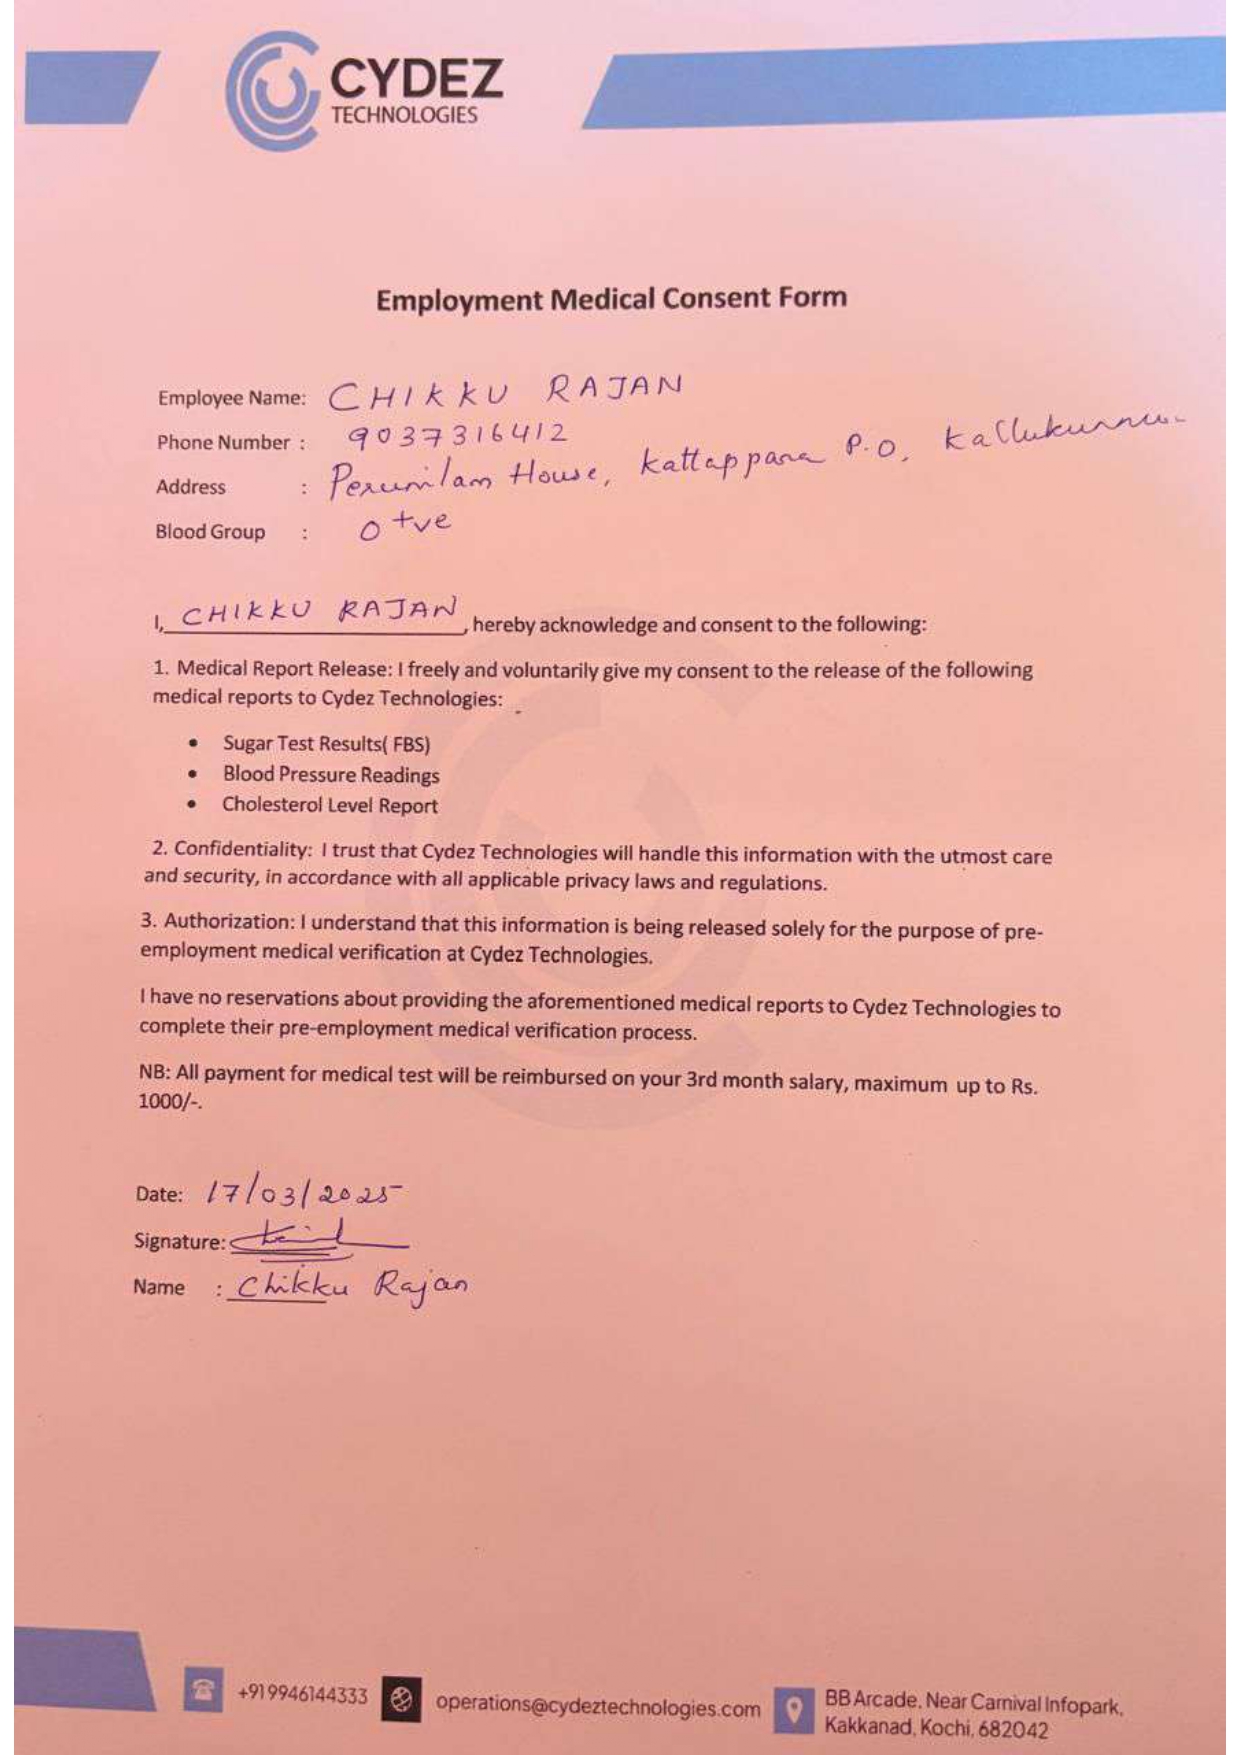 CYDEZ
TECHNOLOGIES
Employment Medical Consent Form
Employee Name: CHIKKU RAJAN
Phone Number : 9037316412
Address : Perumilam House, Kattappana P.O, Kallukunnu
Blood Group : O +ve
I, CHIKKU RAJAN, hereby acknowledge and consent to the following:
1. Medical Report Release: I freely and voluntarily give my consent to the release of the following
medical reports to Cydez Technologies:
• Sugar Test Results( FBS)
• Blood Pressure Readings
• Cholesterol Level Report
2. Confidentiality: I trust that Cydez Technologies will handle this information with the utmost care
and security, in accordance with all applicable privacy laws and regulations.
3. Authorization: I understand that this information is being released solely for the purpose of pre-
employment medical verification at Cydez Technologies.
I have no reservations about providing the aforementioned medical reports to Cydez Technologies to
complete their pre-employment medical verification process.
NB: All payment for medical test will be reimbursed on your 3rd month salary, maximum up to Rs.
1000/-.
Date: 17/03/2025
Signature:
Name : Chikku Rajan
+919946144333 operations@cydeztechnologies.com BB Arcade, Near Carnival Infopark,
Kakkanad, Kochi, 682042